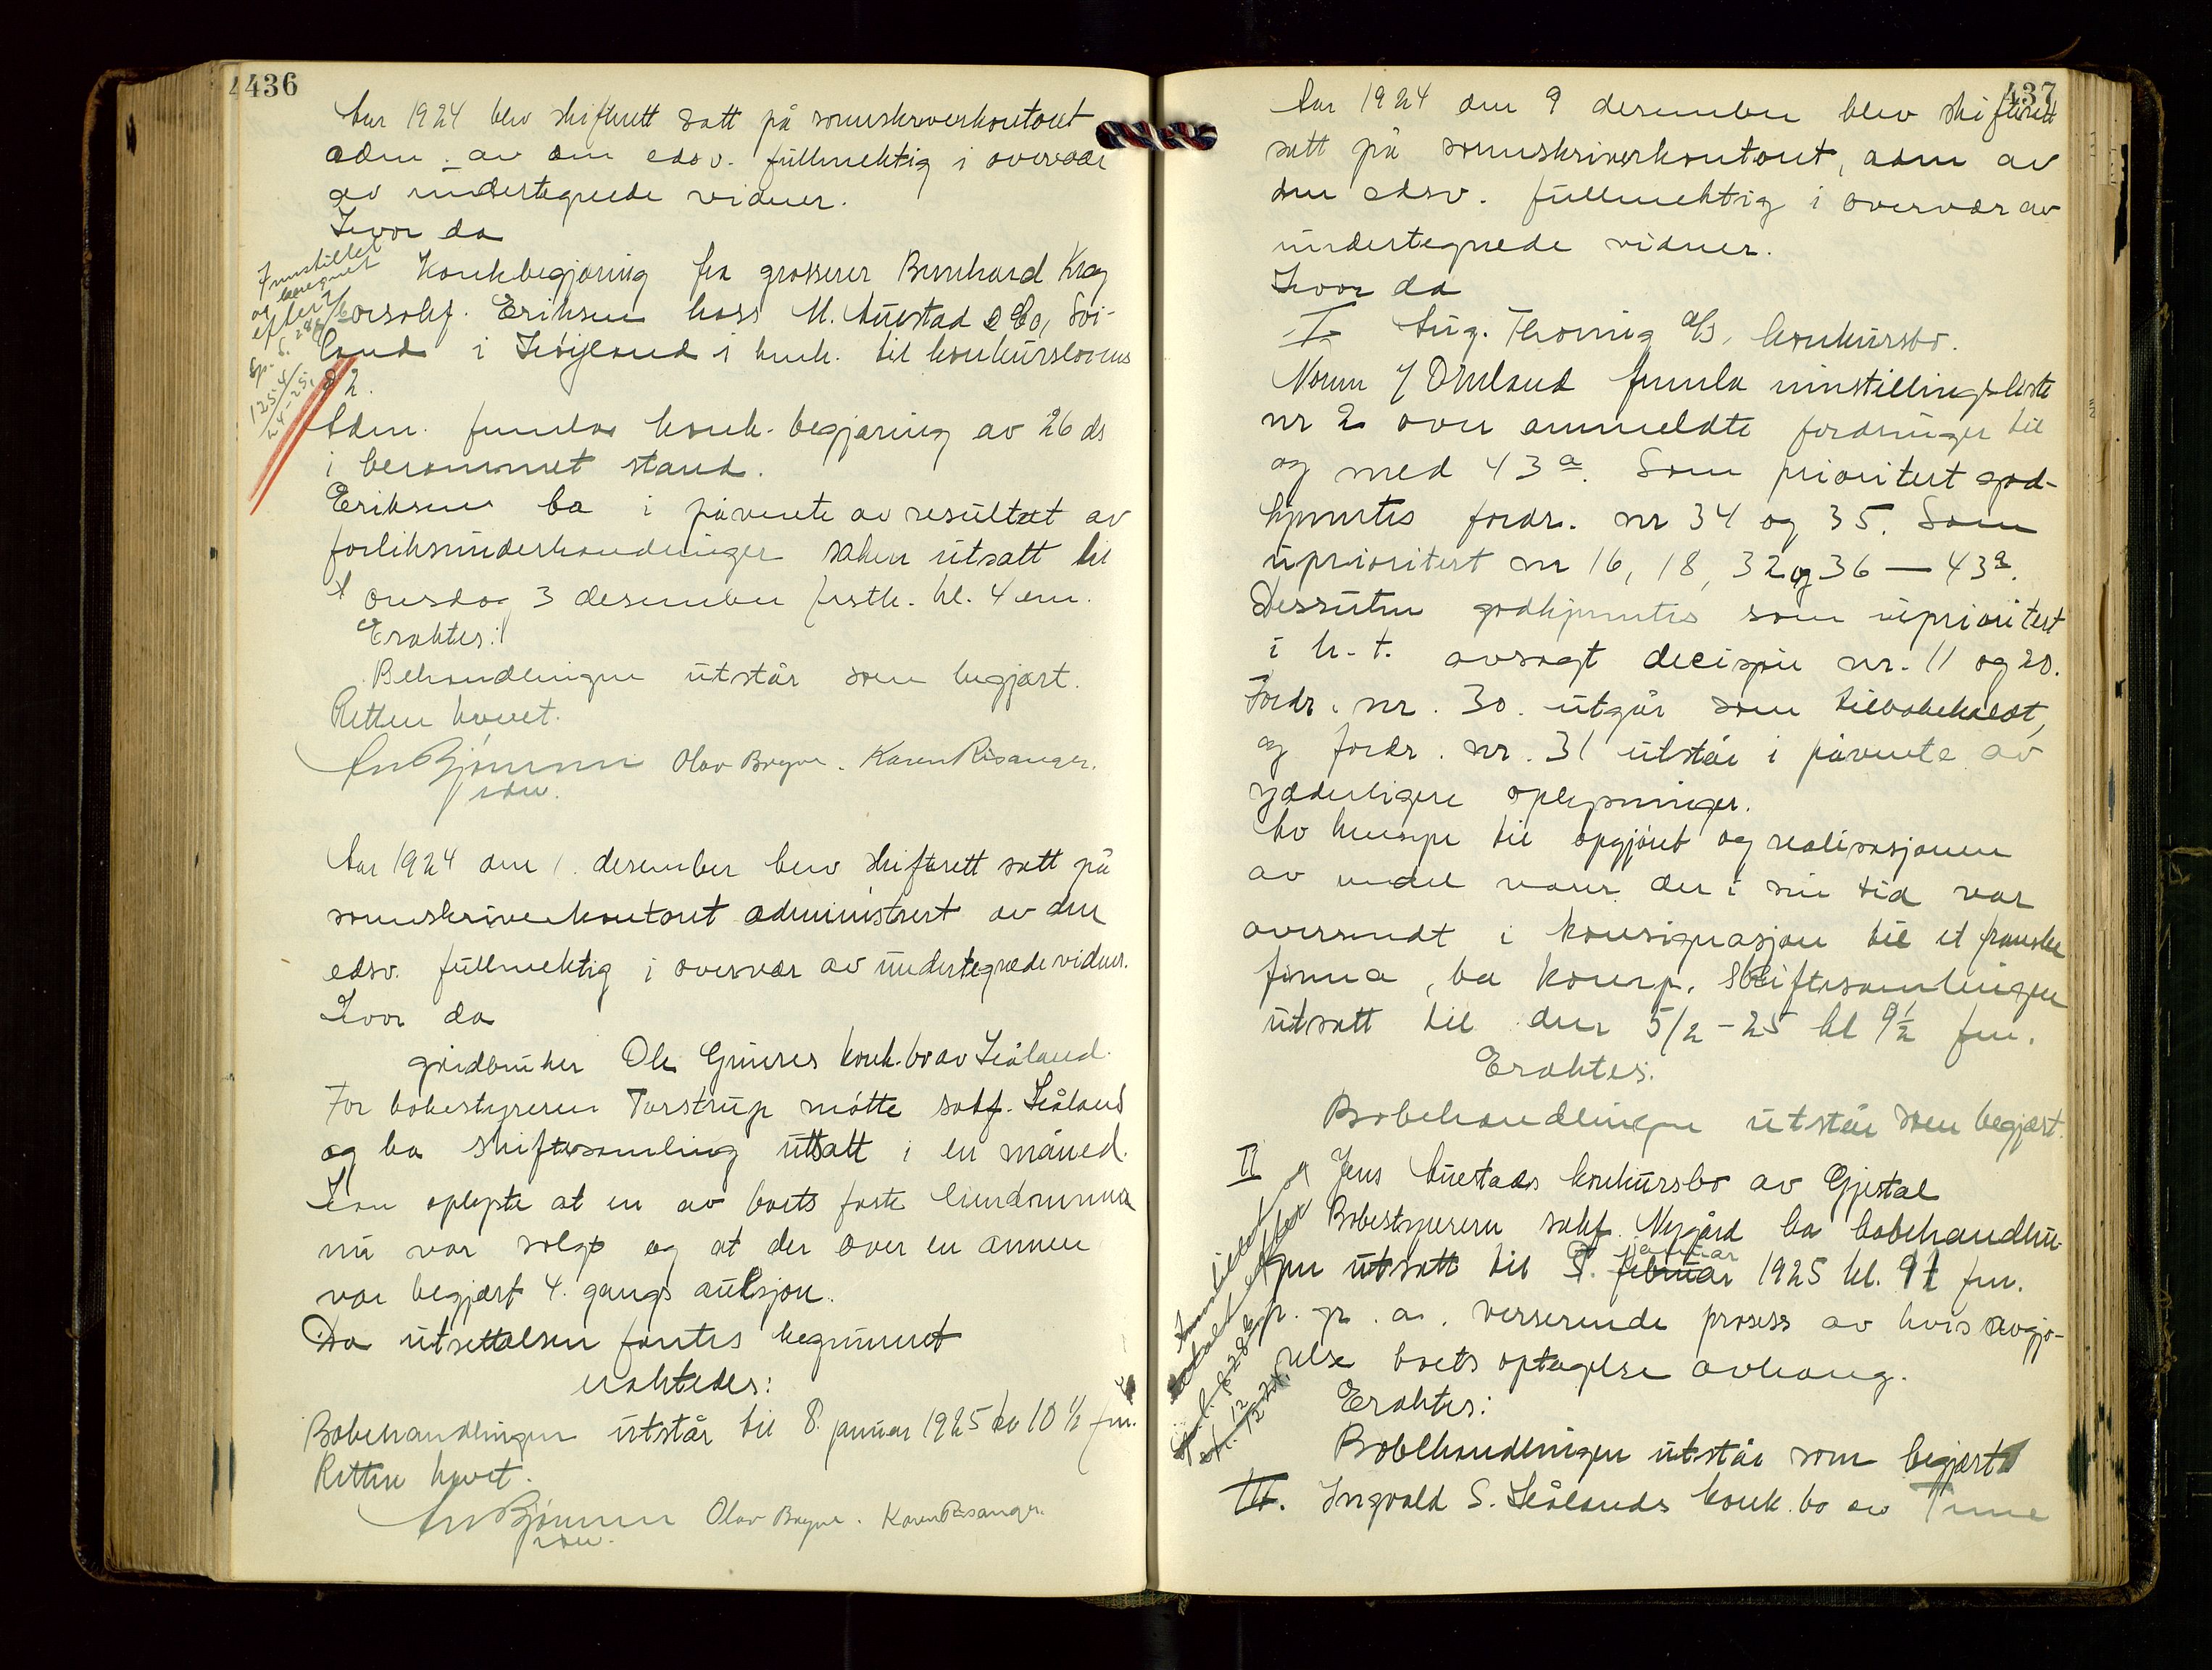 436
Aar 1924 blev skifterett satt på sorenskriverkontoret
adm. av den edsv. fullmektig i overvær
av undertegnede vidner.
Hvor da
Konkbegjæring fra grosserer Bernhard Krag
v/orsakf. Eriksen hos M. Auestad & Co, Soi-
land i Høiland i henh. til konkurslovens
§ 2.
Innstillet
og beregnet
efter
Sp. S. 286
125 4/
24-25.
Adm. fremla konk.begjæring av 26 ds
i berammet stand.
Eriksen ba i påvente av resultatet av
forliksunderhandlinger saken utsatt til
onsdag 3 desember førstk. kl. 4 em.
Eraktes:
Behandlingen utstår som begjært.
Retten hevet.
Bjørnsen Olav Bryne. Karen Risanger.
edsv.
Aar 1924 den 1. desember blev skifterett satt på
sorenskriverkontoret administrert av den
edsv. fullmektig i overvær av undertegnede vidner.
Hvor da
gårdbruker Ole Grimres konk.bo av Håland.
For bobestyreren Tarstrup møtte sakf. Håland
og ba skiftesamling uttsatt i en måned.
Han oplyste at en av boets faste eiendommer
nu var solgt og at der over en annen
var begjært 4. gangs auksjon.
Da utsettelsen fantes begrunnet
eraktedes:
Bobehandlingen utstår til 8. januar 1925 kl 10 ½ fm.
Retten hevet.
Bjørnsen Olav Bryne. Karen Risanger.
edsv.
437
Aar 1924 den 9 desember blev skifterett
satt på sorenskriverkontoret, adm av
den edsv. fullmektig i overvær av
undertegnede vidner.
Hvor da
I Aug. Thornig A/S, konkursbo.
Norem f/ Omland fremla innstillingsliste
nr 2 over anmeldte fordringer til
og med 43 a. Som prioritert god-
kjentes fordr. nr 34 og 35. Som
uprioritert nr 16, 18, 32 og 36 — 43a.
Dessuten godkjentes som uprioritert
i h. t. avsagt decisjon nr. 11 og 20.
Fordr. nr. 30 utgår som tilbakekaldt,
og fordr. nr. 31 utstår i påvente av
yderligere oplysninger.
Av hensyn til opgjøret og realisasjonen
av endel varer der i sin tid var
oversendt i konsignasjon til et franske
firma, ba komp. Skiftesamlingen
utsatt til den 5/2 - 25 kl 9½ fm.
Eraktes:
Bobehandlingen utstår som begjært.
II Jens Auestads konkursbo av Gjestal
Bobestyreren sakf. Nygård ba bobehandlin-
gen utsatt til 8. februar januar 1925 kl. 11 fm.
p. gr. a. verserende prosess av hvis avgjø-
relse boets optagelse avhang.
Eraktes:
Bobehandlingen utstår som begjært
III. Ingvald S. Hålands konk.bo av Time